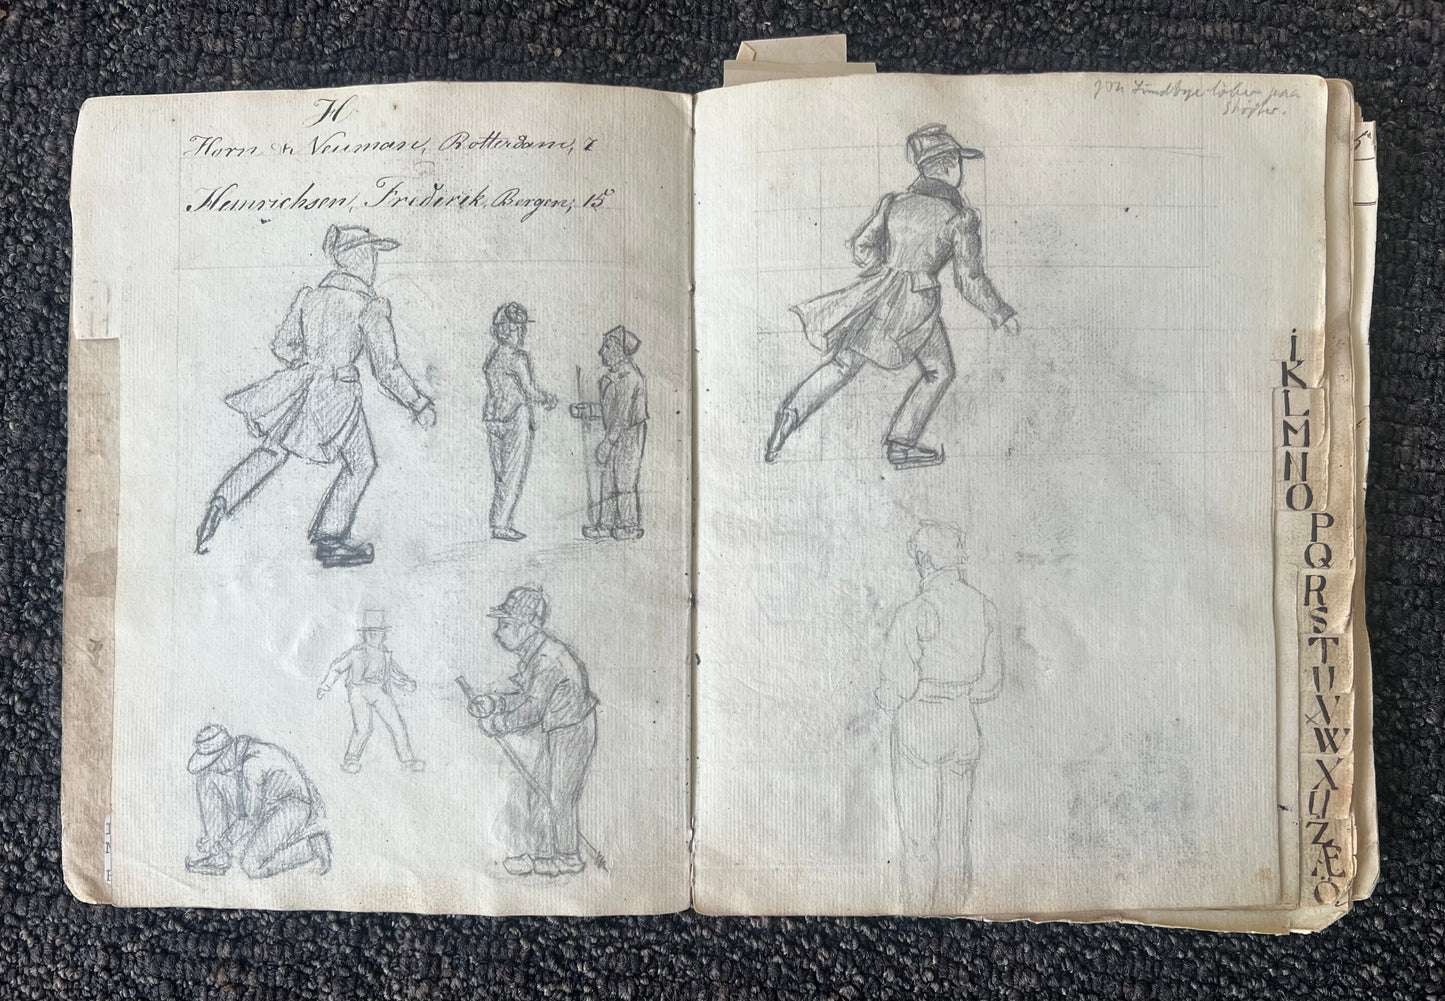 H
Horn & Neuman, Rotterdam, 7
Heinrichsen, Frederik, Bergen, 15
Lundbye løber paa
Skøjter.
I
K
L
M
N
O
P
Q
R
S
T
U
V
W
X
Z
Æ
Ö